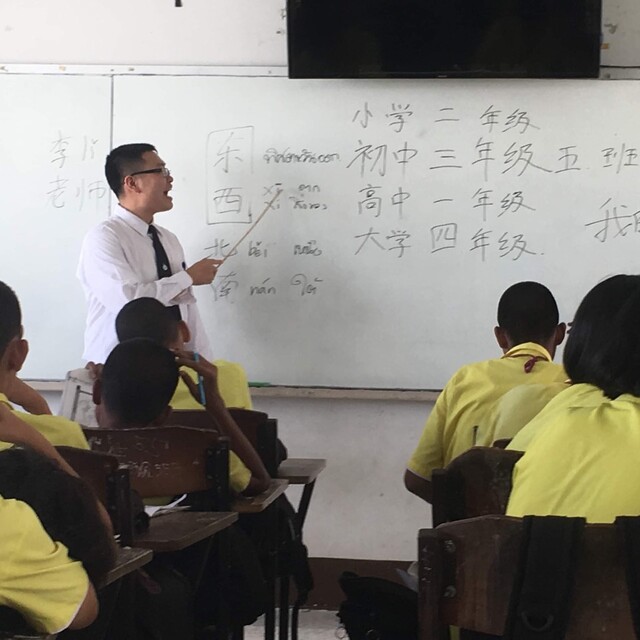 李
老师
东 ทิศตะวันออก
西 xī ตก
北 běi เหนือ
南 nán ใต้
小学 二 年级
初中 三 年级 五 班
高中 一 年级
大学 四 年级.
我